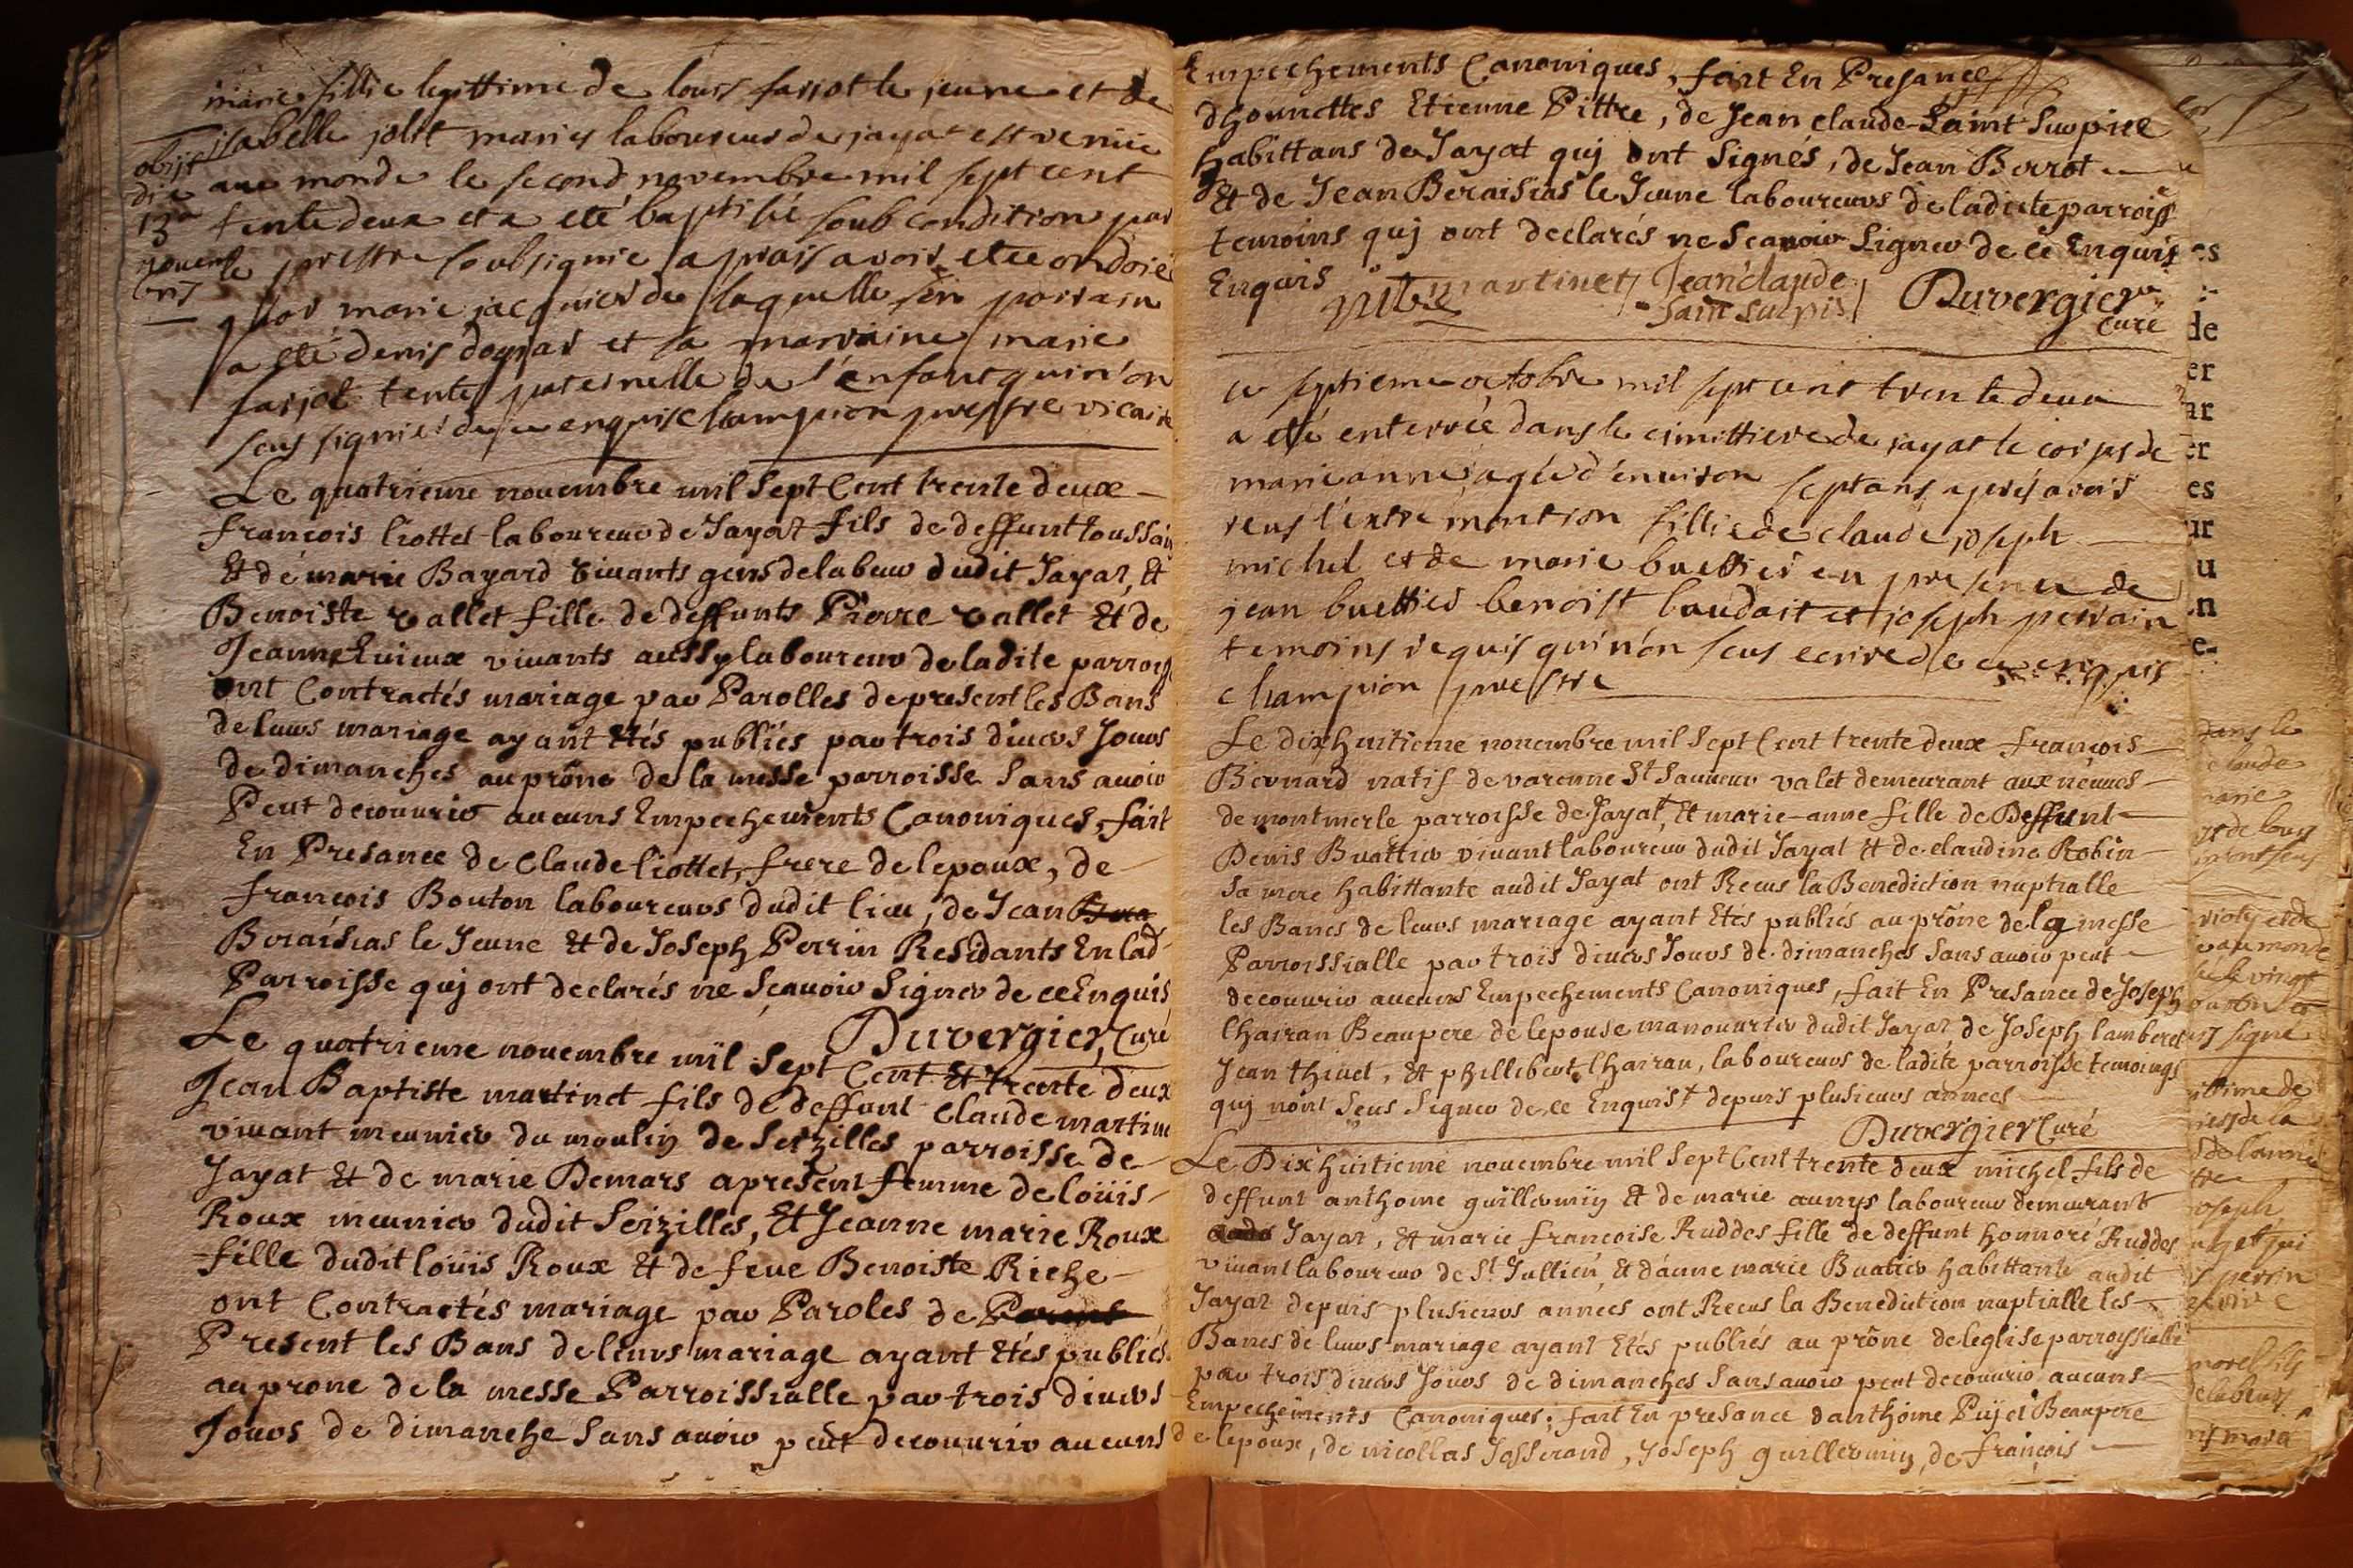 marie fillie legittime de louis farjot le jeune et de
isabelle jolit mariés laboureurs de jayat est venüe
aux monde le second novembre mil sept cent
trente deux et a eté baptisée soub condition par
le prestre soubsignie aprais avoir etee ondoiée
par marie jacquier de laquelle son parrain
a eté denis et sa marraine marie
farjot tente paternelle de l'enfant qui n'on
seus signier de ce enquis champion prestre vicaire
obijt
die
13a
novem
bris
Le quatrieme nouembre mil sept Cent trente deux
françois liottet laboureur de Jayat fils de deffunt toussain
Et de marie Bayard viuants gens de labeur dudit Jayat, Et
Benoiste vallet fille de deffunts Pierre vallet Et de
Jeanne viuants aussy laboureur de ladite parroisse
ont Contractés mariage par Parolles de present les Bans
de leurs mariage ayant Etés publiés par trois diuers Jours
de dimanches au prône de la messe parroisse sans auoir
Peut decouurir aucuns Empechements Canoniques, fait
En Presance de Claude liottet, frere de lepoux, de
françois Bouton laboureurs dudit lieu, de Jean
Beraisias le Jeune Et de Joseph Perrin Residants En lad
Parroisse quj ont declarés ne Sçauoir Signer de ce Enquis
Duvergier, Curé
Le quatrieme nouembre mil sept Cent Et trente deux
Jean Baptiste martinet fils de deffunt Claude martine
viuant meunier du moulin de Seizilles parroisse de
Jayat Et de marie Demars apresent femme de loüis
Roux meunier dudit Seizilles, Et Jeanne marie Roux
fille dudit loüis Roux Et de feue Benoiste Riche
ont Contractés mariage par Paroles de
Present les Bans de leurs mariage ayant Etés publiés
au prone de la messe Parroissialle par trois diuers
Jours de dimanche sans auoir peut decouurir aucuns
Empechements Canoniques, fait En Presance
dhonnettes Etienne Pittre, de Jean claude Saint Suspice
habittans de Jayat quj ont Signés, de Jean Berrot
Et de Jean Beraisias le Jeune laboureurs de ladicte parroiss
temoins quj ont declarés ne Scauoir Signer de ce Enquis
Enquis
pitre martinet Jean claude
Saint sulpis Duvergier
Curé
ce septieme octobre mil sept cent trente deux
a eté enterrée dans le cimittiere de jayat le corps de
marie anne agée d'environ sept ans aprés avoir
reus l'extre montion fillie de claude joseph
michel et de marie buettier en presence de
jean buettier benoist baudait et joseph perrain
temoins requis qui n'on seus ecrire de ce enquis
champion prestre
Le dixhuitieme nouembre mil Sept Cent trente deux françois
Bernard natif de varenne St Sauueur valet demeurant aux
de montmerle parroisse de Jayat, Et marie-anne fille de Deffunt
Denis Buattier viuant laboureur dudit Jayat Et de claudine Robin
sa mere habittante audit Jayat ont Recus la Benediction nuptialle
les Bancs de leurs mariage ayant Etés publiés au prône de la messe
Parroissialle par trois diuers Jours de dimanches sans auoir peut
decouurir aucuns Empechements Canoniques, fait En Presance de Joseph
Chairan Beaupere de lepouse manouurier dudit Jayat, de Joseph lamberet
Jean thiuet, Et phillibert Chairan, laboureurs de ladite parroisse temoings
quj nont Seus Signer de ce Enquist depuis plusieurs annees
Duvergier Curé
Le Dixhuitieme nouembre mil Sept Cent trente deux michel fils de
deffunt anthome guillermin Et de marie aunys laboureur demeurant
Jayat, Et marie francoise Ruddes fille de deffunt honnoré Ruddes
viuant laboureur de St Jullien, Et danne marie Buatier habittante audit
Jayat depuis plusieurs annees ont Recus la Benediction nuptialle les
Bancs de leurs mariage ayant Etés publiés au prône de leglise parroissialle
par trois diuers Jours de dimanches sans auoir peut decouurir aucuns
Empechements Canoniques; fait En presance danthoine Pujet Beaupere
de lepoux, de nicollas Josserand, Joseph guillermin, de françois